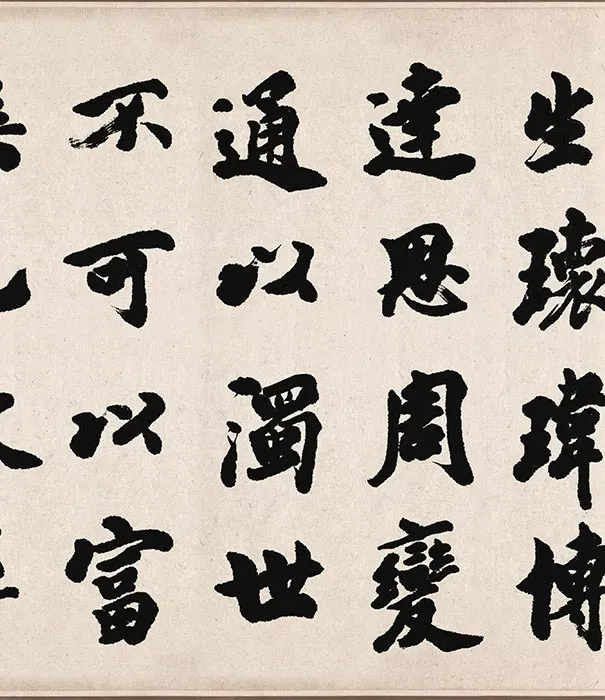 生瓌瑋博
達思周變
通以濁世
不可以富